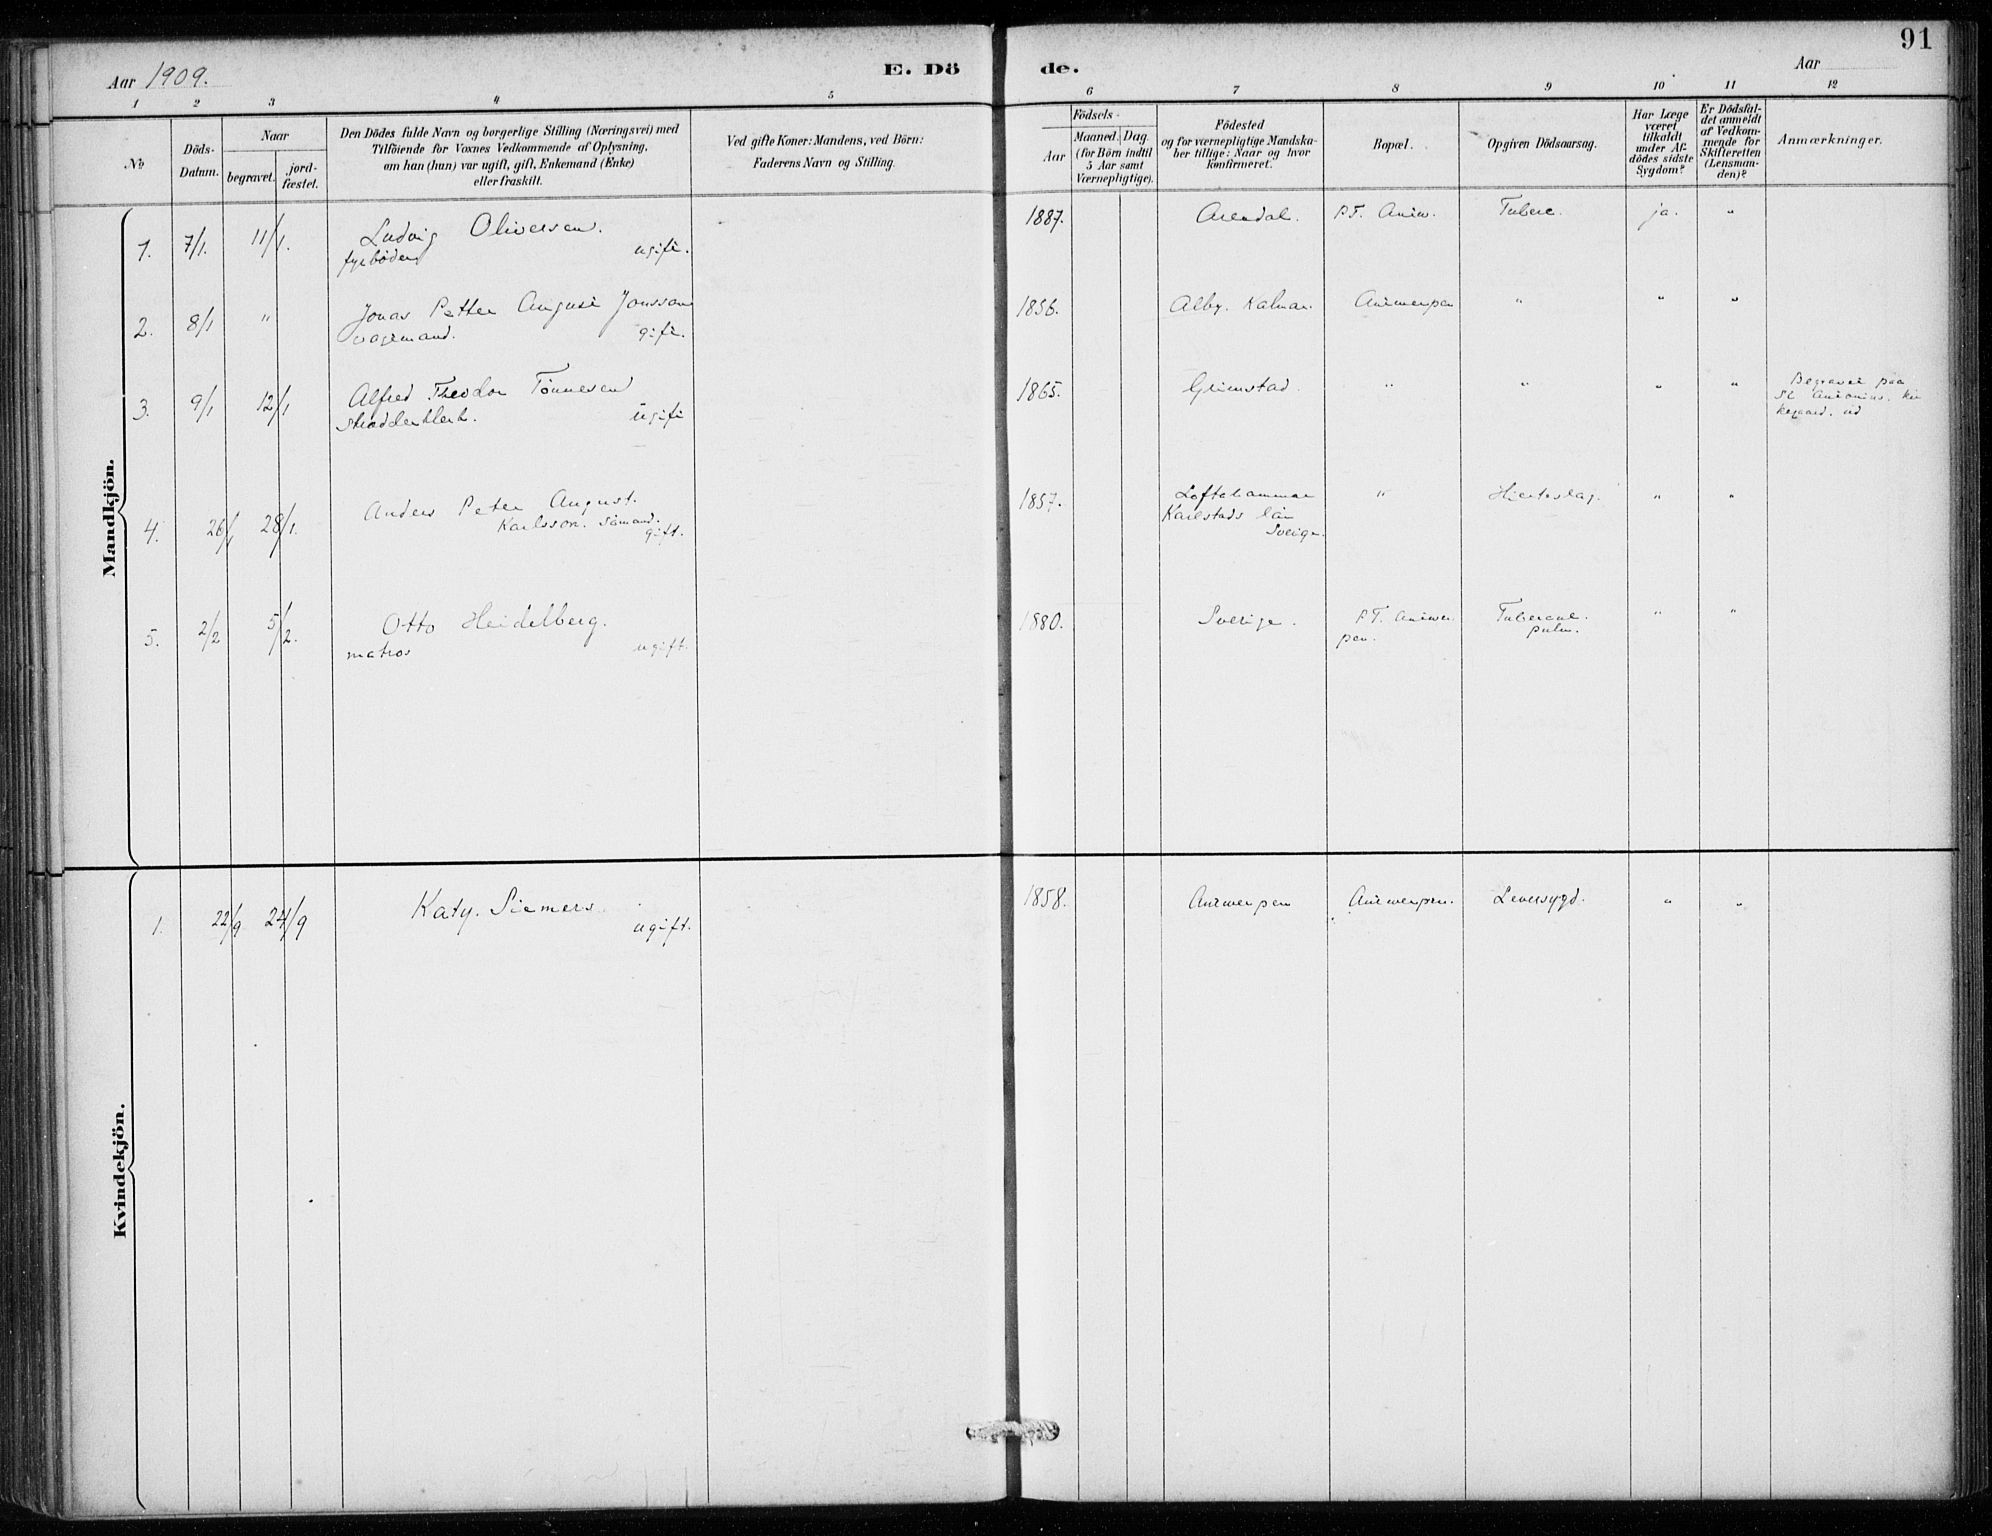 91
Aar 1909.
E. Dö
de.
Aar
1 2 3 4 5 6 7 8 9 10 11 12
No
Döds-Datum.
Naar
begravet.
jord-fæstet.
Den Dödes fulde Navn og borgerlige Stilling (Næringsvei) med
Tilföiende for Voxnes Vedkommende af Oplysning,
om han (hun) var ugift, gift, Enkemand (Enke)
eller fraskilt.
Ved gifte Koner: Mandens, ved Börn:
Faderens Navn og Stilling.
Födsels-
Aar
Maaned. Dag.
(for Börn indtil
5 Aar samt
Værnepligtige).
Födested
og for værnepligtige Mandska-
ber tillige: Naar og hvor
konfirmeret.
Bopæl.
Opgiven Dödsaarsag.
Har Læge
været
tilkaldt
under Af-
dödes sidste
Sygdom?
Er Dödsfal-
det anmeldt
af Vedkom-
mende for
Skifteretten
(Lensman-
den)?
Anmærkninger.
Mandkjön.
1. 7/1. 11/1. Ludvig Oliversen. 1887. Arendal. P.T. Antw. Tuberc. ja. "
fyrböder ugift.
2. 8/1 " Jonas Petter August Jonsson 1856. Alby. Kalmar. Antwerpen " " "
vagtmand. gift.
3. 9/1 12/1 Alfred Theodor Tönnesen 1865. Grimstad. " " " " Begravet paa
St Antonius. kir
kegaard.
ugift
4. 26/1 28/1. Anders Peter August. 1857. Loftahammar " Hjerteslag. " "
Karlsson. sömand. Karlstads län
gift. Sverige.
5. 2/2 5/2. Otto Heidelberg. 1880. Sverige. P.T. Antwer Tubercul. " "
matros ugift. pen. pulm.
Kvindekjön.
1. 22/9 24/9 Katy. Siemers 1858. Antwerpen Antwerpen. Leversygd. " "
ugift.